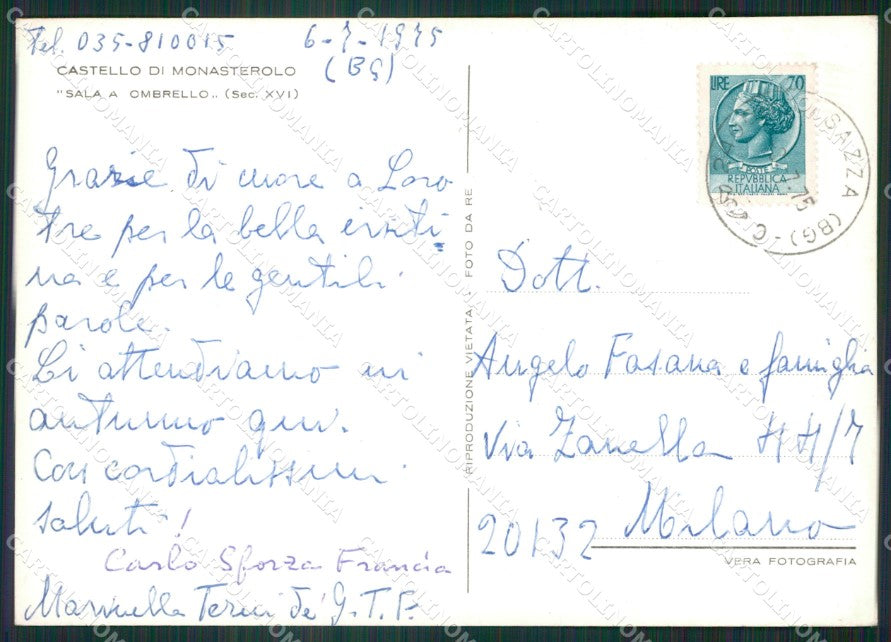 Tel. 035-810015 6-7-1975
(BG)
CASTELLO DI MONASTEROLO
"SALA A OMBRELLO„ (Sec. XVI)
Grazie di cuore a Loro
tre per la bella
e per le gentili
parole.
Li attendiamo in
autunno qui.
Con cordialissimi
saluti!
Carlo Sforza Francia
Marinella
RIPRODUZIONE VIETATA FOTO DA RE
LIRE 70
POSTE
REPVBBLICA
ITALIANA
Dott.
Angelo Fasana e famiglia
Via Zanella 44/7
20132 Milano
VERA FOTOGRAFIA
CARTOLINOMANIA